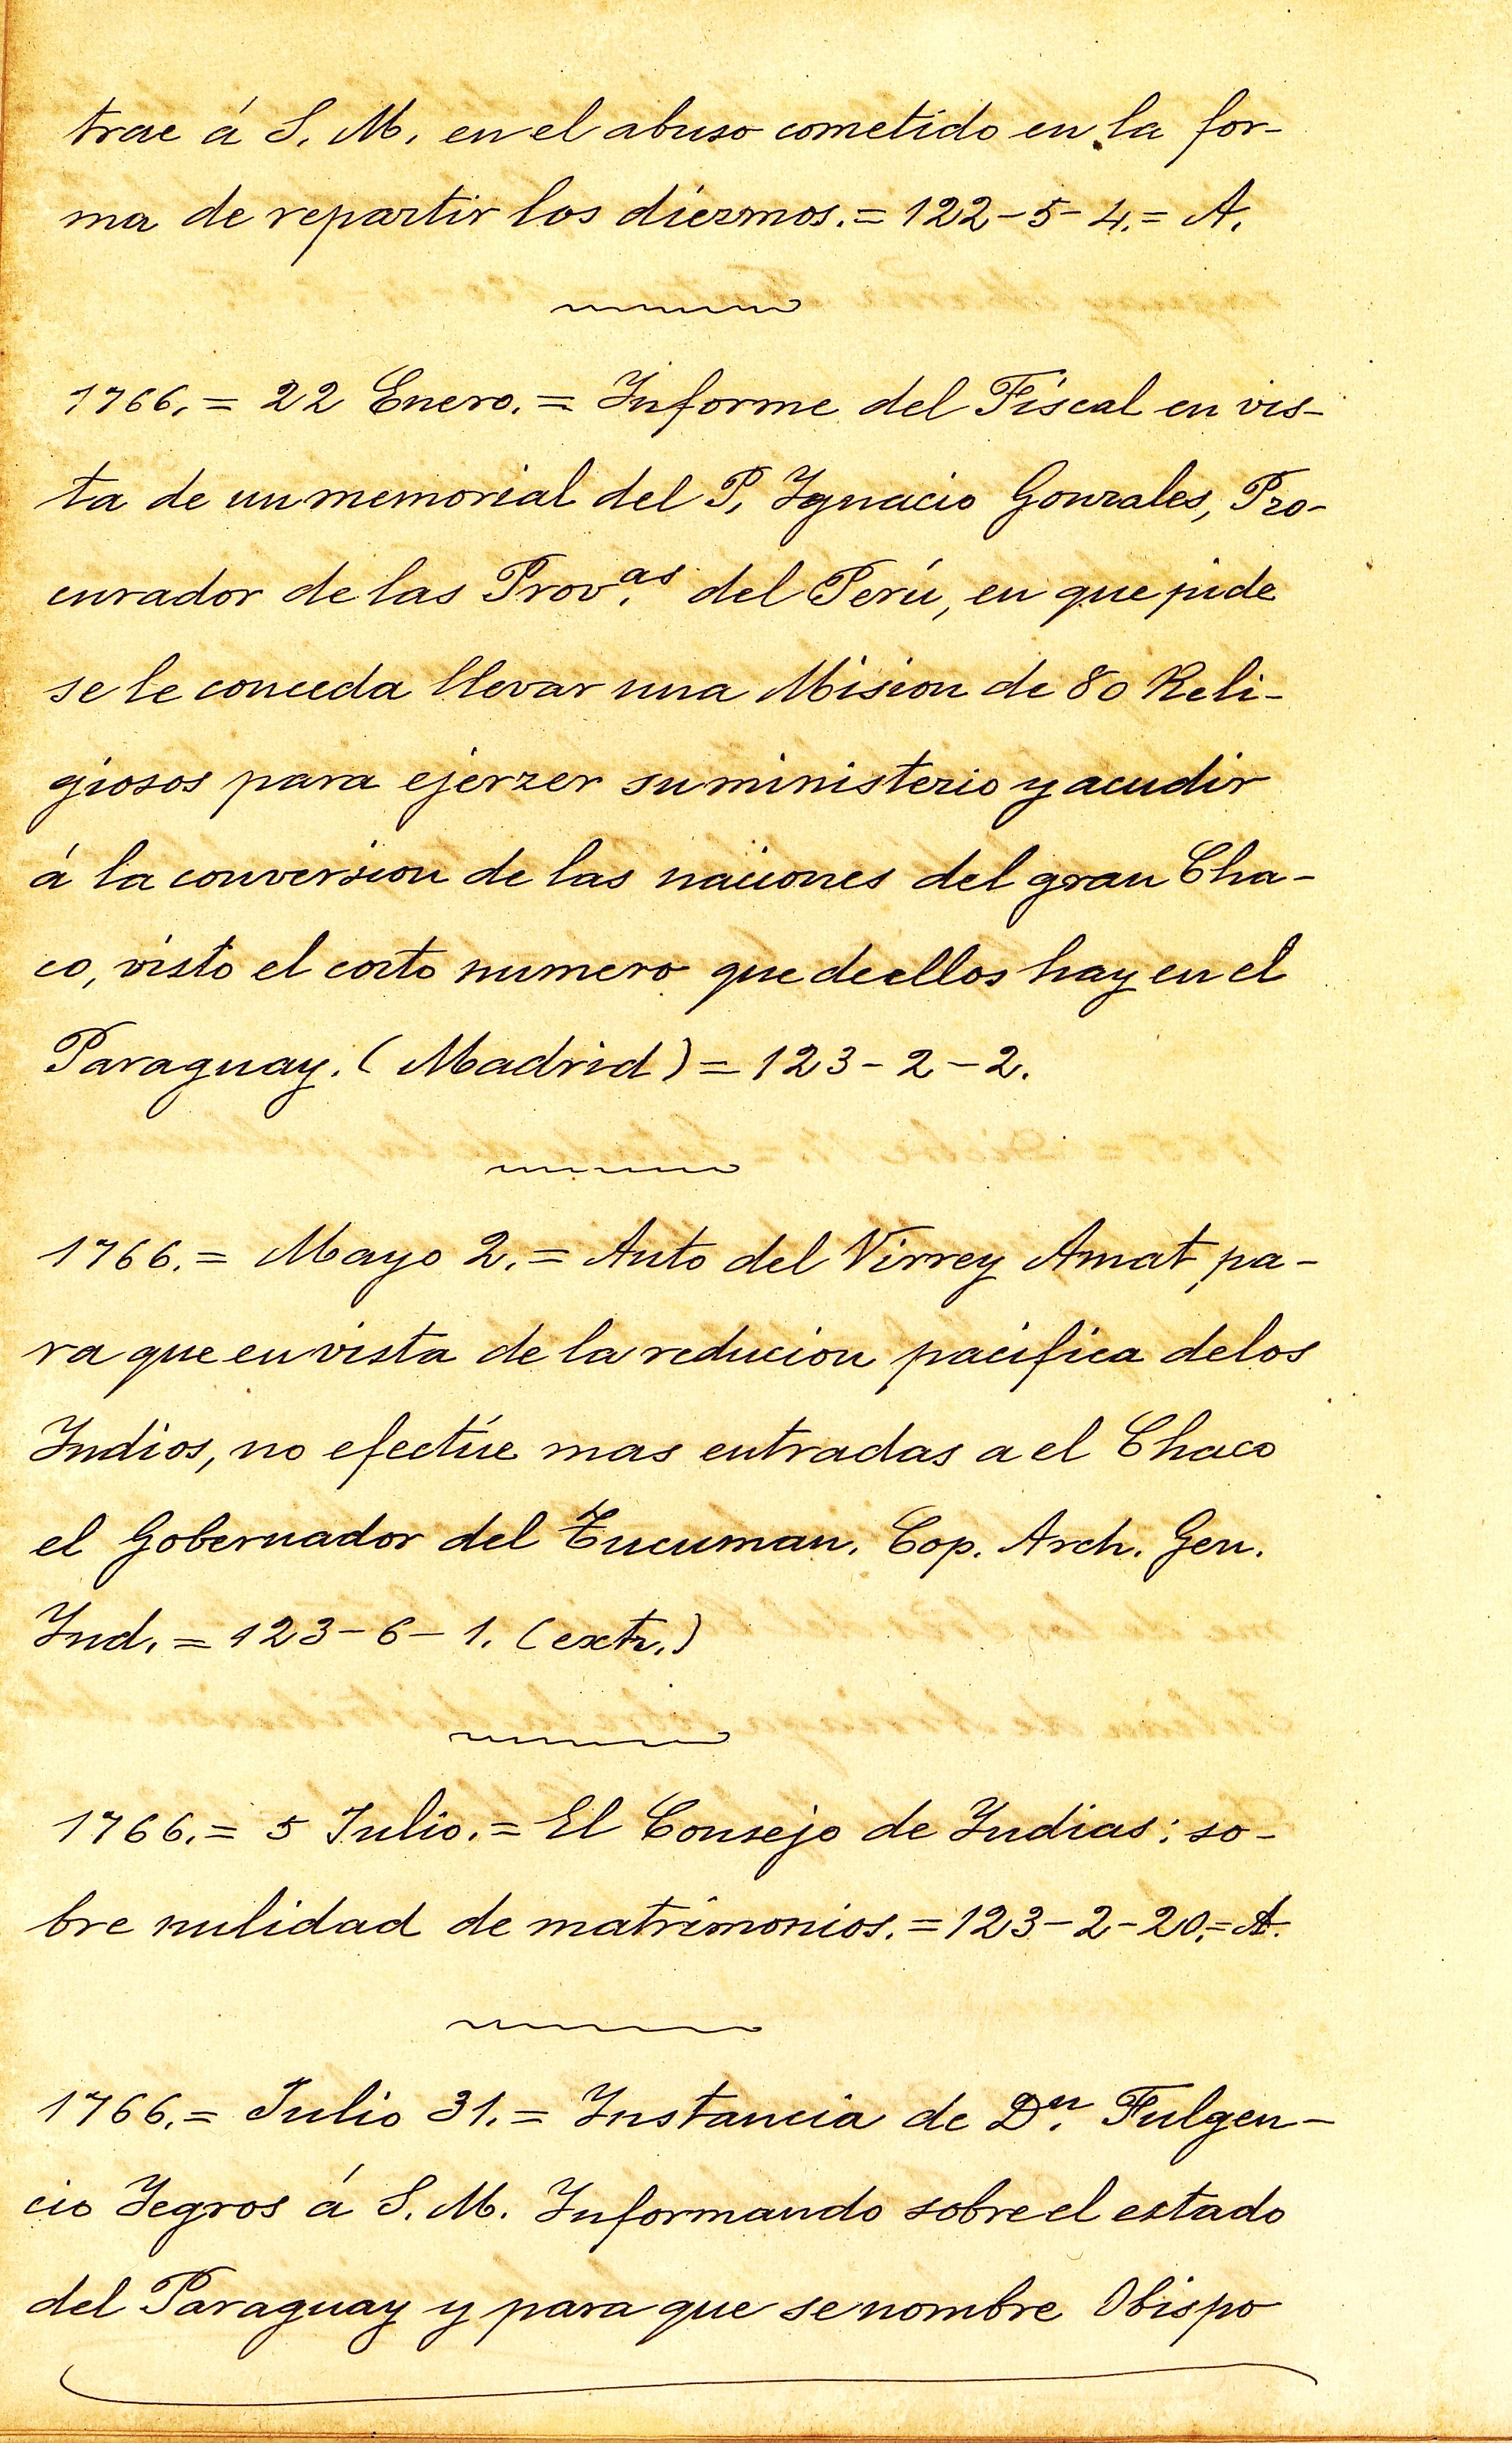 trae á S. M. en el abuso cometido en la for-
ma de repartir los diezmos.= 122-5-4.= A.
1766.= 22 Enero.= Informe del Fiscal en vis-
ta de un memorial del P. Ignacio Gonzales, Pro-
curador de las Prov.as del Perú, en que pide
se le conceda llevar una Mision de 80 Reli-
giosos para ejerzer su ministerio y acudir
á la conversion de las naciones del gran Cha-
co, visto el corto numero que de ellos hay en el
Paraguay. (Madrid) = 123-2-2.
1766.= Mayo 2.= Auto del Virrey Amat pa-
ra que en vista de la reducion pacifica de los
Indios, no efectúe mas entradas a el Chaco
el Gobernador del Tucuman. Cop. Arch. Gen.
Ind. = 123-6-1. (extr.)
1766.= 5 Julio.= El Consejo de Indias: so-
bre nulidad de matrimonios.= 123-2-20.= A.
1766.= Julio 31.= Instancia de Dn. Fulgen-
cio Yegros á S. M. Informando sobre el estado
del Paraguay y para que se nombre Obispo